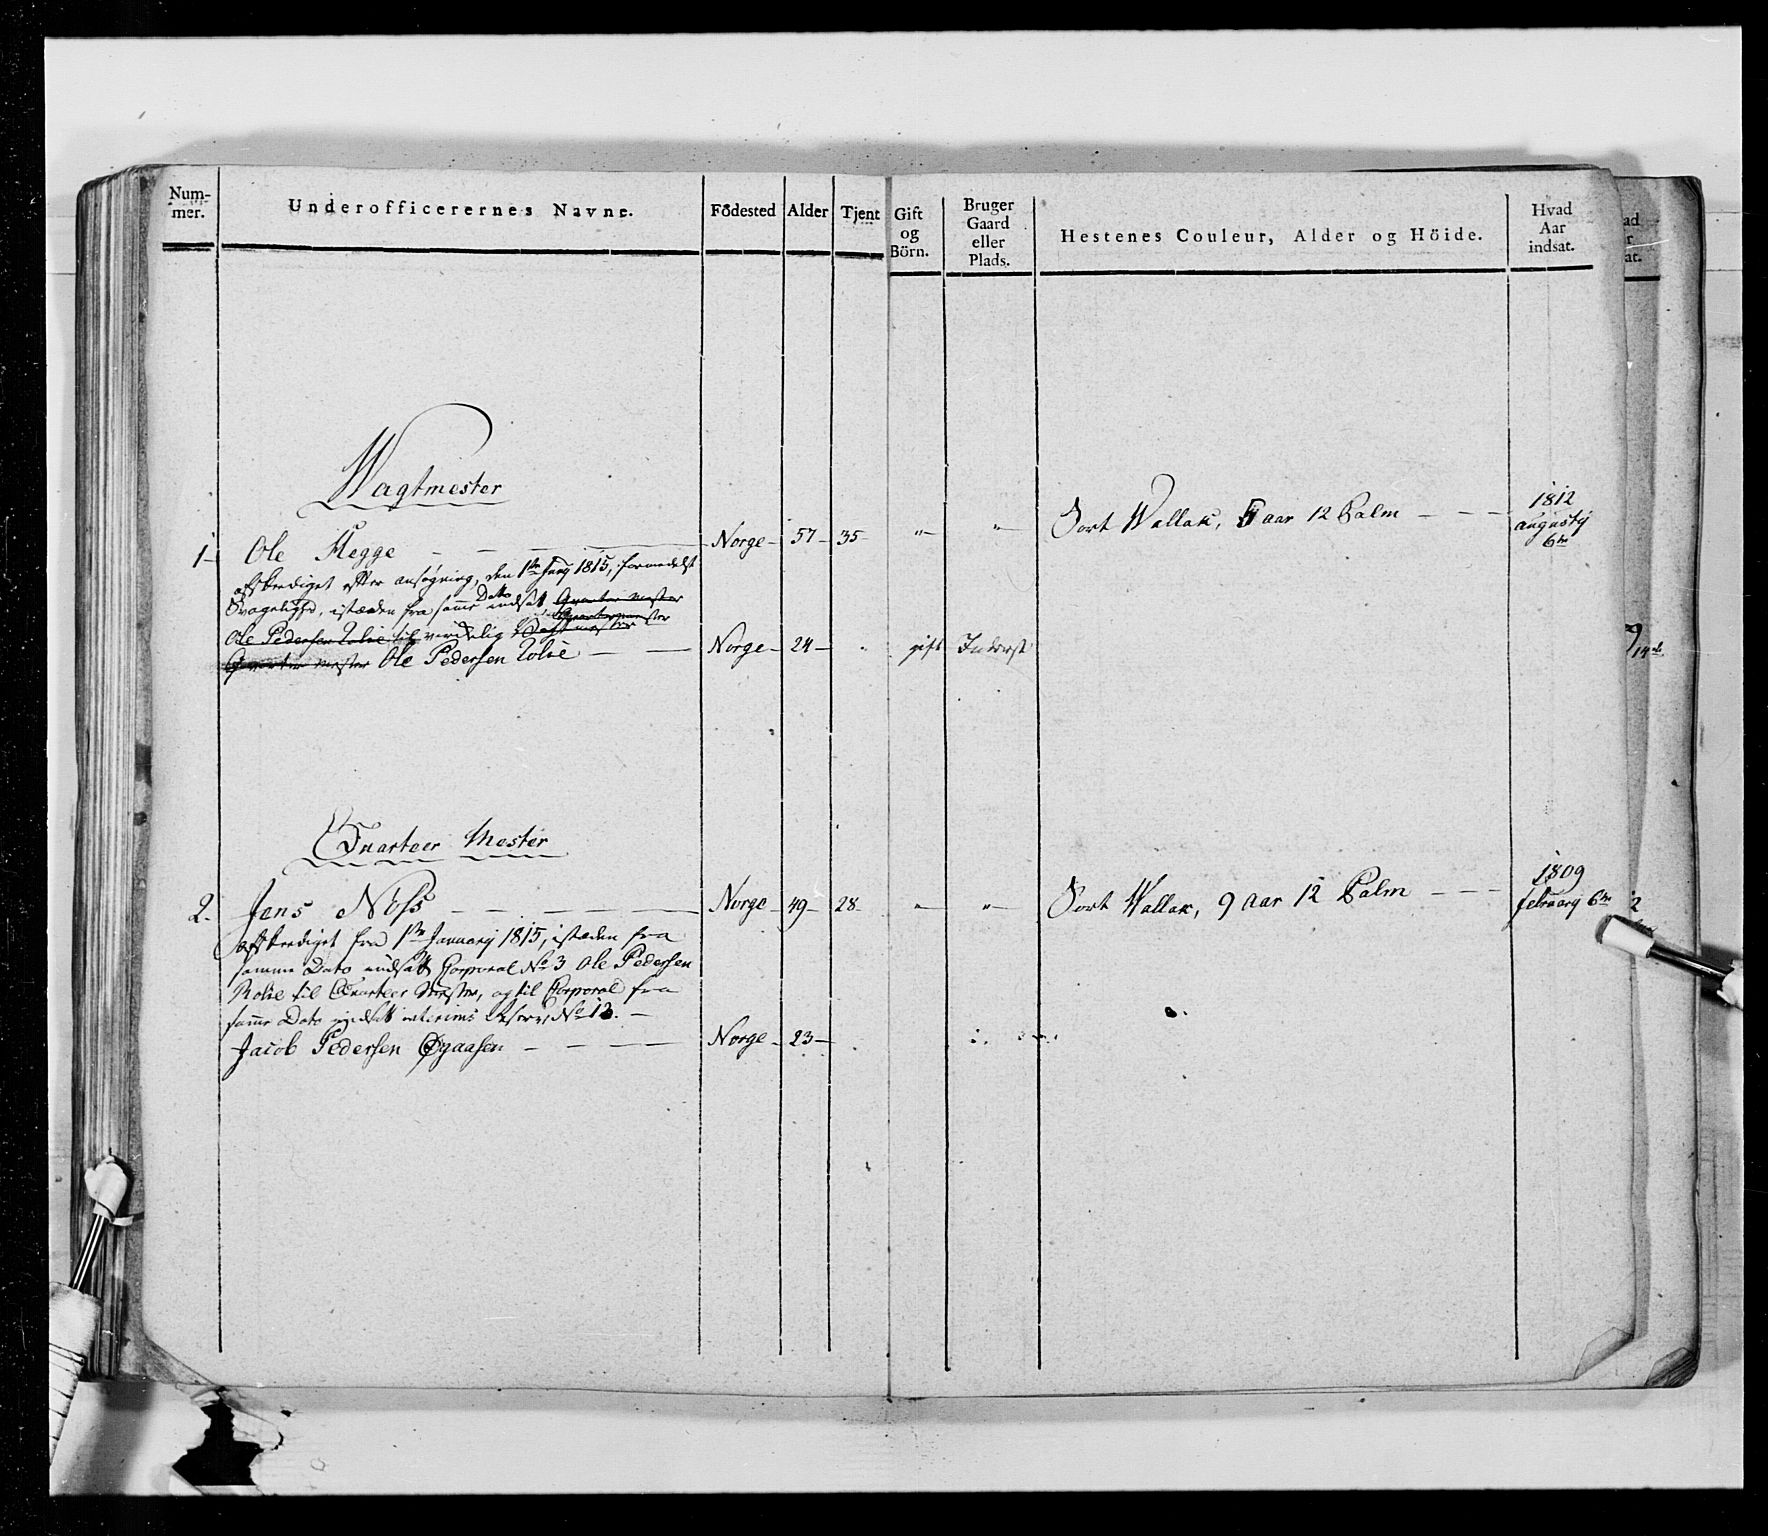 Num-
mer.
Underofficerernes Navne.
Födested
Alder
Tjent
Gift
og
Börn.
Bruger
Gaard
eller
Plads.
Hestenes Couleur, Alder og Höide.
Hvad
Aar
indsat.
Wagtmester
1 Ole Hegge — — — — Norge 57 35 " " Sort Wallak, 5 aar 12 Palm — — — 1812
augustij
6te
afskediget efter ansøgning, den 1te Junij 1815, formedelst
Svagelighed, istæden fra samme Dato indsat Quarter Mester
Quartermester
Ole Pedersen Lolie til virkelig Wagtmester
Quarter Mester Ole Pedersen Lolie — — Norge 24 gift Inderst
Quarteer Mester
2. Jens Noss — — — — Norge 49 28 " " Sort Wallak, 9 aar 12 Palm — — — 1809
februarij 6te
afskediget fra 1te Januarij 1815, istæden fra
samme Dato indsatt Corporal No 3 Ole Pedersen
til Quarteer Mester, og til Corporal fra
samme Dato indsatt interims No 12. —
Jacob Pedersen Øgaasen — — — — Norge 23
ad
r
at.
14
2